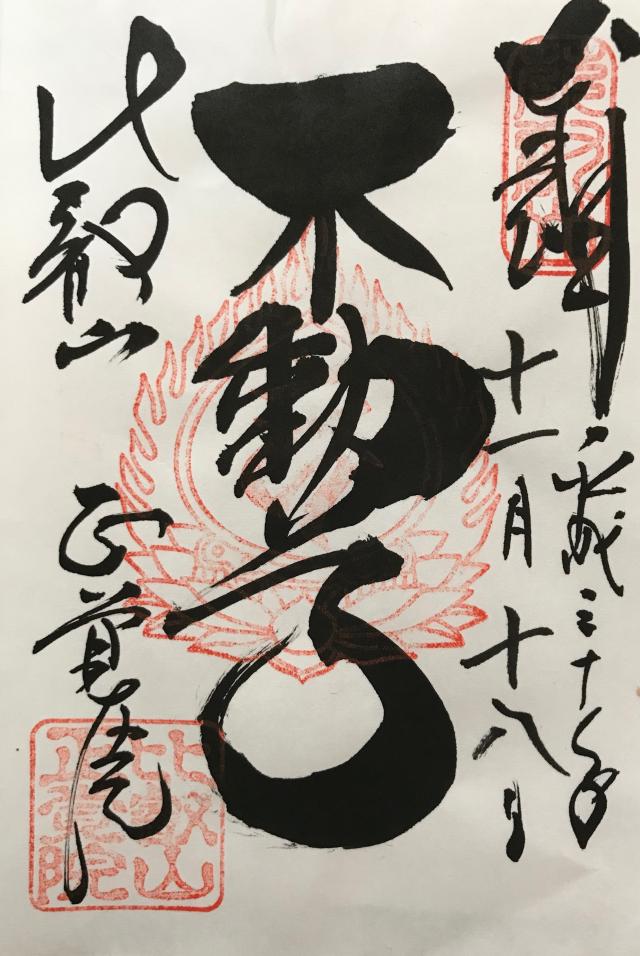 奉拝
平成三十年
十一月十八日
不動尊
比叡山
正覚院
比叡山
正覺院